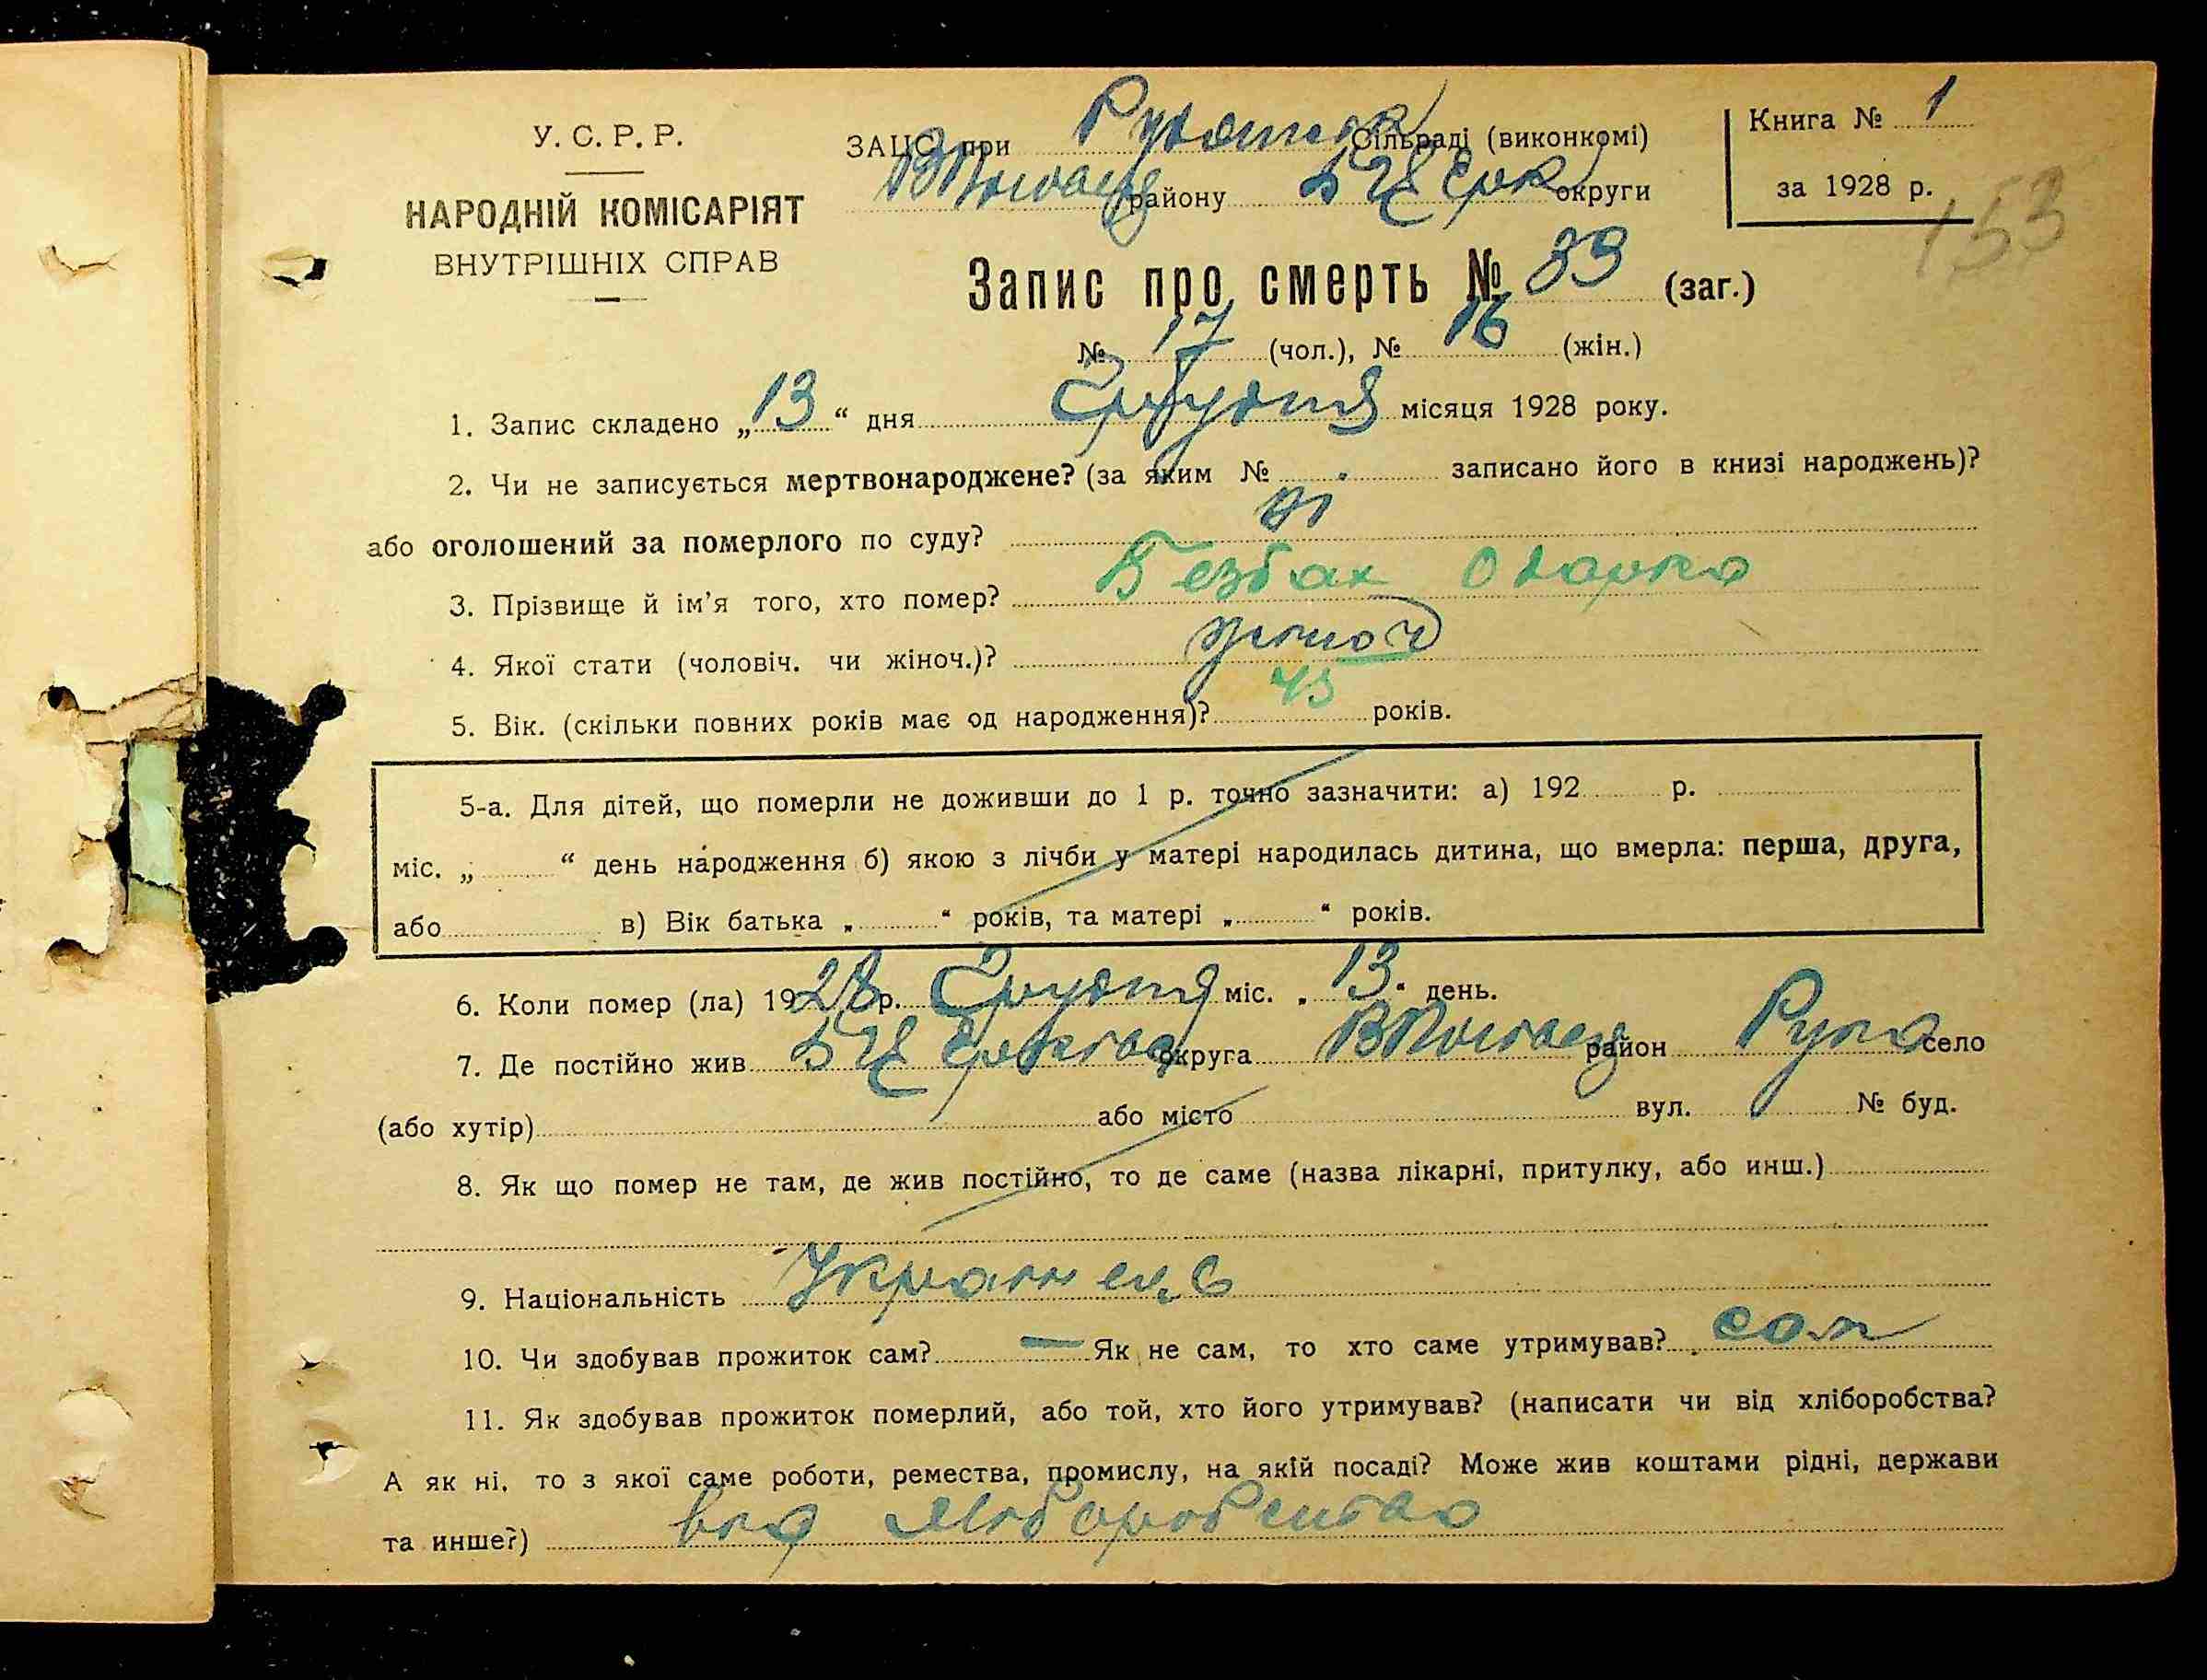 У. С. Р. Р.
НАРОДНІЙ КОМІСАРІЯТ
ВНУТРІШНІХ СПРАВ
ЗАЦС при Сільраді (виконкомі)
району БЦерк округи
Книга № 1
за 1928 р.
153
Запис про смерть № 33 (заг.)
№ 17 (чол.), № 16 (жін.)
1. Запис складено „13“ дня Грудня місяця 1928 року.
2. Чи не записується мертвонароджене? (за яким № записано його в книзі народжень)?
або оголошений за померлого по суду? ні
3. Прізвище й ім'я того, хто помер? Безбах Одарка
4. Якої стати (чоловіч. чи жіноч.)? жіноч
5. Вік. (скільки повних років має од народження)? 45 років.
5-а. Для дітей, що померли не доживши до 1 р. точно зазначити: а) 192 р.
міс. „ “ день народження б) якою з лічби у матері народилась дитина, що вмерла: перша, друга,
або в) Вік батька „ “ років, та матері „ “ років.
6. Коли помер (ла) 1928 р. Грудня міс. „13“ день.
7. Де постійно жив БЦерківс округа район село
(або хутір) або місто вул. № буд.
8. Як що помер не там, де жив постійно, то де саме (назва лікарні, притулку, або инш.)
9. Національність Українець
10. Чи здобував прожиток сам? — Як не сам, то хто саме утримував? сам
11. Як здобував прожиток померлий, або той, хто його утримував? (написати чи від хліборобства?
А як ні, то з якої саме роботи, ремества, промислу, на якій посаді? Може жив коштами рідні, держави
та инше?) від хліборобства